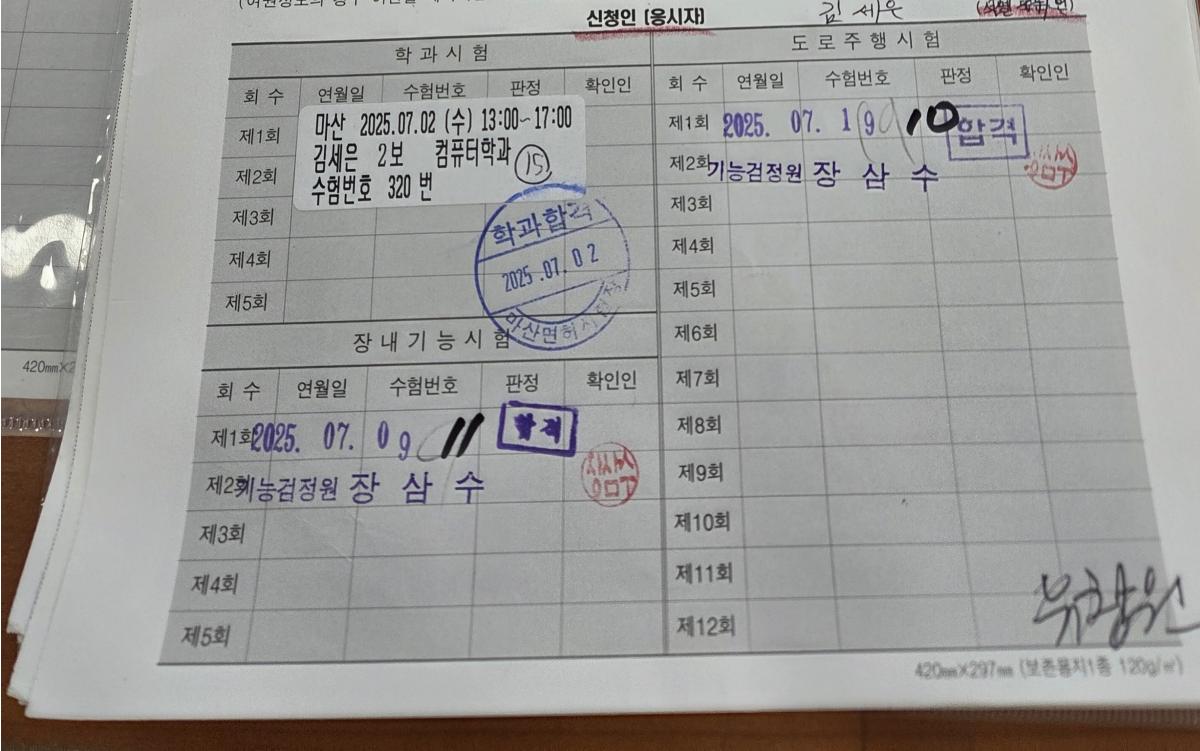 신청인 (응시자) 김세은
학과시험
회 수 연월일 수험번호 판정 확인인
제1회
제2회
제3회
제4회
제5회
마산 2025.07.02 (수) 13:00~17:00
김세은 2보 컴퓨터학과 15
수험번호 320 번
학과합격
2025.07.02
장내기능시험
회 수 연월일 수험번호 판정 확인인
제1회 2025. 07. 09 11 합격
제2회 기능검정원 장 삼 수
제3회
제4회
제5회
도로주행시험
회 수 연월일 수험번호 판정 확인인
제1회 2025. 07. 19 10 합격
제2회 기능검정원 장 삼 수
제3회
제4회
제5회
제6회
제7회
제8회
제9회
제10회
제11회
제12회
420㎜×297㎜ (보존용지1종 120g/㎡)
420㎜×2